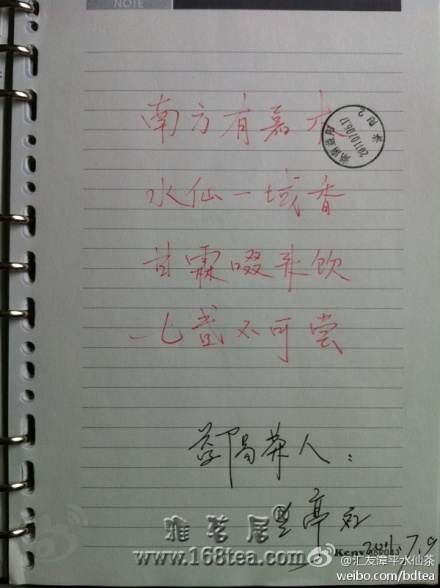 NOTE
南方有嘉木
水仙一域香
甘霖啜来饮
七盏不可尝
2011.07.06.17
人：
雅茗居
www.168tea.com
2011.7.9
@汇友漳平水仙茶
weibo.com/bdtea